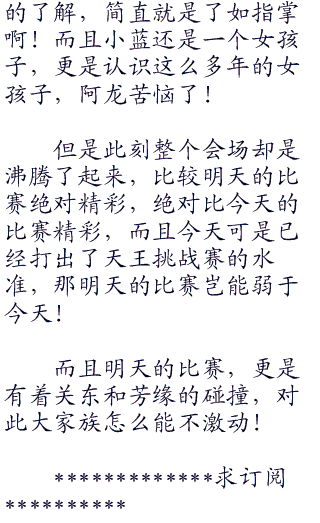 的了解，简直就是了如指掌
啊！而且小蓝还是一个女孩
子，更是认识这么多年的女
孩子，阿龙苦恼了！
但是此刻整个会场却是
沸腾了起来，比较明天的比
赛绝对精彩，绝对比今天的
比赛精彩，而且今天可是已
经打出了天王挑战赛的水
准，那明天的比赛岂能弱于
今天！
而且明天的比赛，更是
有着关东和芳缘的碰撞，对
此大家族怎么能不激动！
*************求订阅
**********